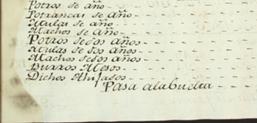 Potros de año
Potrancas de año
Mulas de año
Machos de año
Potros de dos años
Mulas de dos años
Machos de dos años
Burros
Dichos
Pasa alabuelta